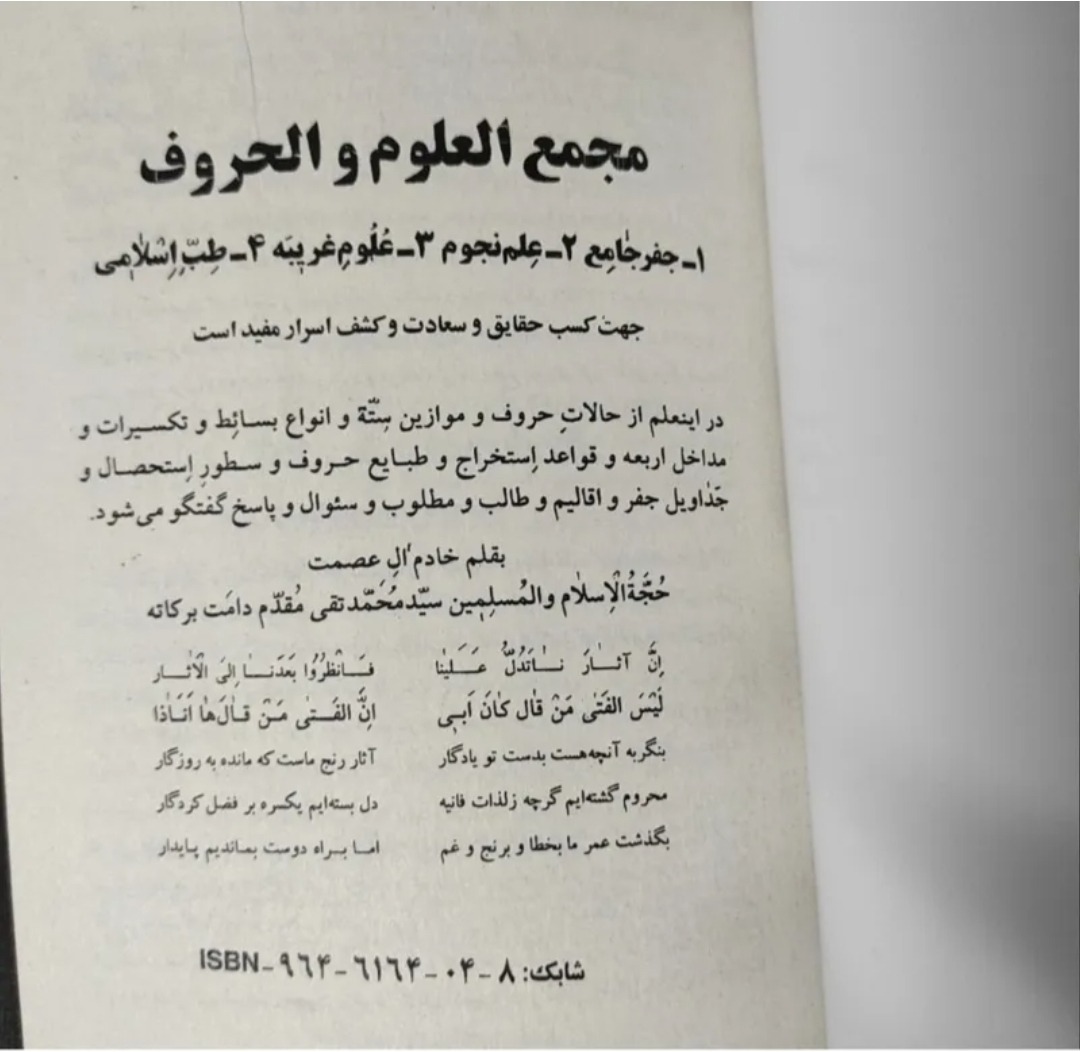 مجمع العلوم و الحروف
۱ـ جفر جامِع ۲ـ عِلم نجوم ۳ـ عُلُومِ غریبَه ۴ـ طِبِّ اِسْلامی
جهت کسب حقایق و سعادت و کشف اسرار مفید است
در اینعلم از حالاتِ حروف و موازین سِتّة و انواع بسائِط و تکسیرات و
مداخل اربعه و قواعد اِستخراج و طبایع حروف و سطورِ اِستحصال و
جَداویل جفر و اقالیم و طالب و مطلوب و سئوال و پاسخ گفتگو می‌شود.
بقلم خادم آلِ عصمت
حُجَّةُالْاِسلام والمُسلِمِین سیّد مُحَمَّد تقی مُقدّم دامَت برکاته
اِنَّ آثارَ ناتَدُلُّ عَلَینا فَانْظُرُوا بَعْدَنا اِلَی الْاٰثار
لَیْسَ الفَتٰی مَنْ قال کانَ اَبی اِنَّ الفَتی مَنْ قالَ ها اَنَاذا
بنگر به آنچه هست بدست تو یادگار آثار رنج ماست که مانده به روزگار
محروم گشته‌ایم گرچه زلذات فانیه دل بسته‌ایم یکسره بر فضل کردگار
بگذشت عمر ما بخطا و برنج و غم اما براه دوست بماندیم پایدار
شابک: ۸ - ۰۴ - ۶۱۶۴ - ۹۶۴ - ISBN